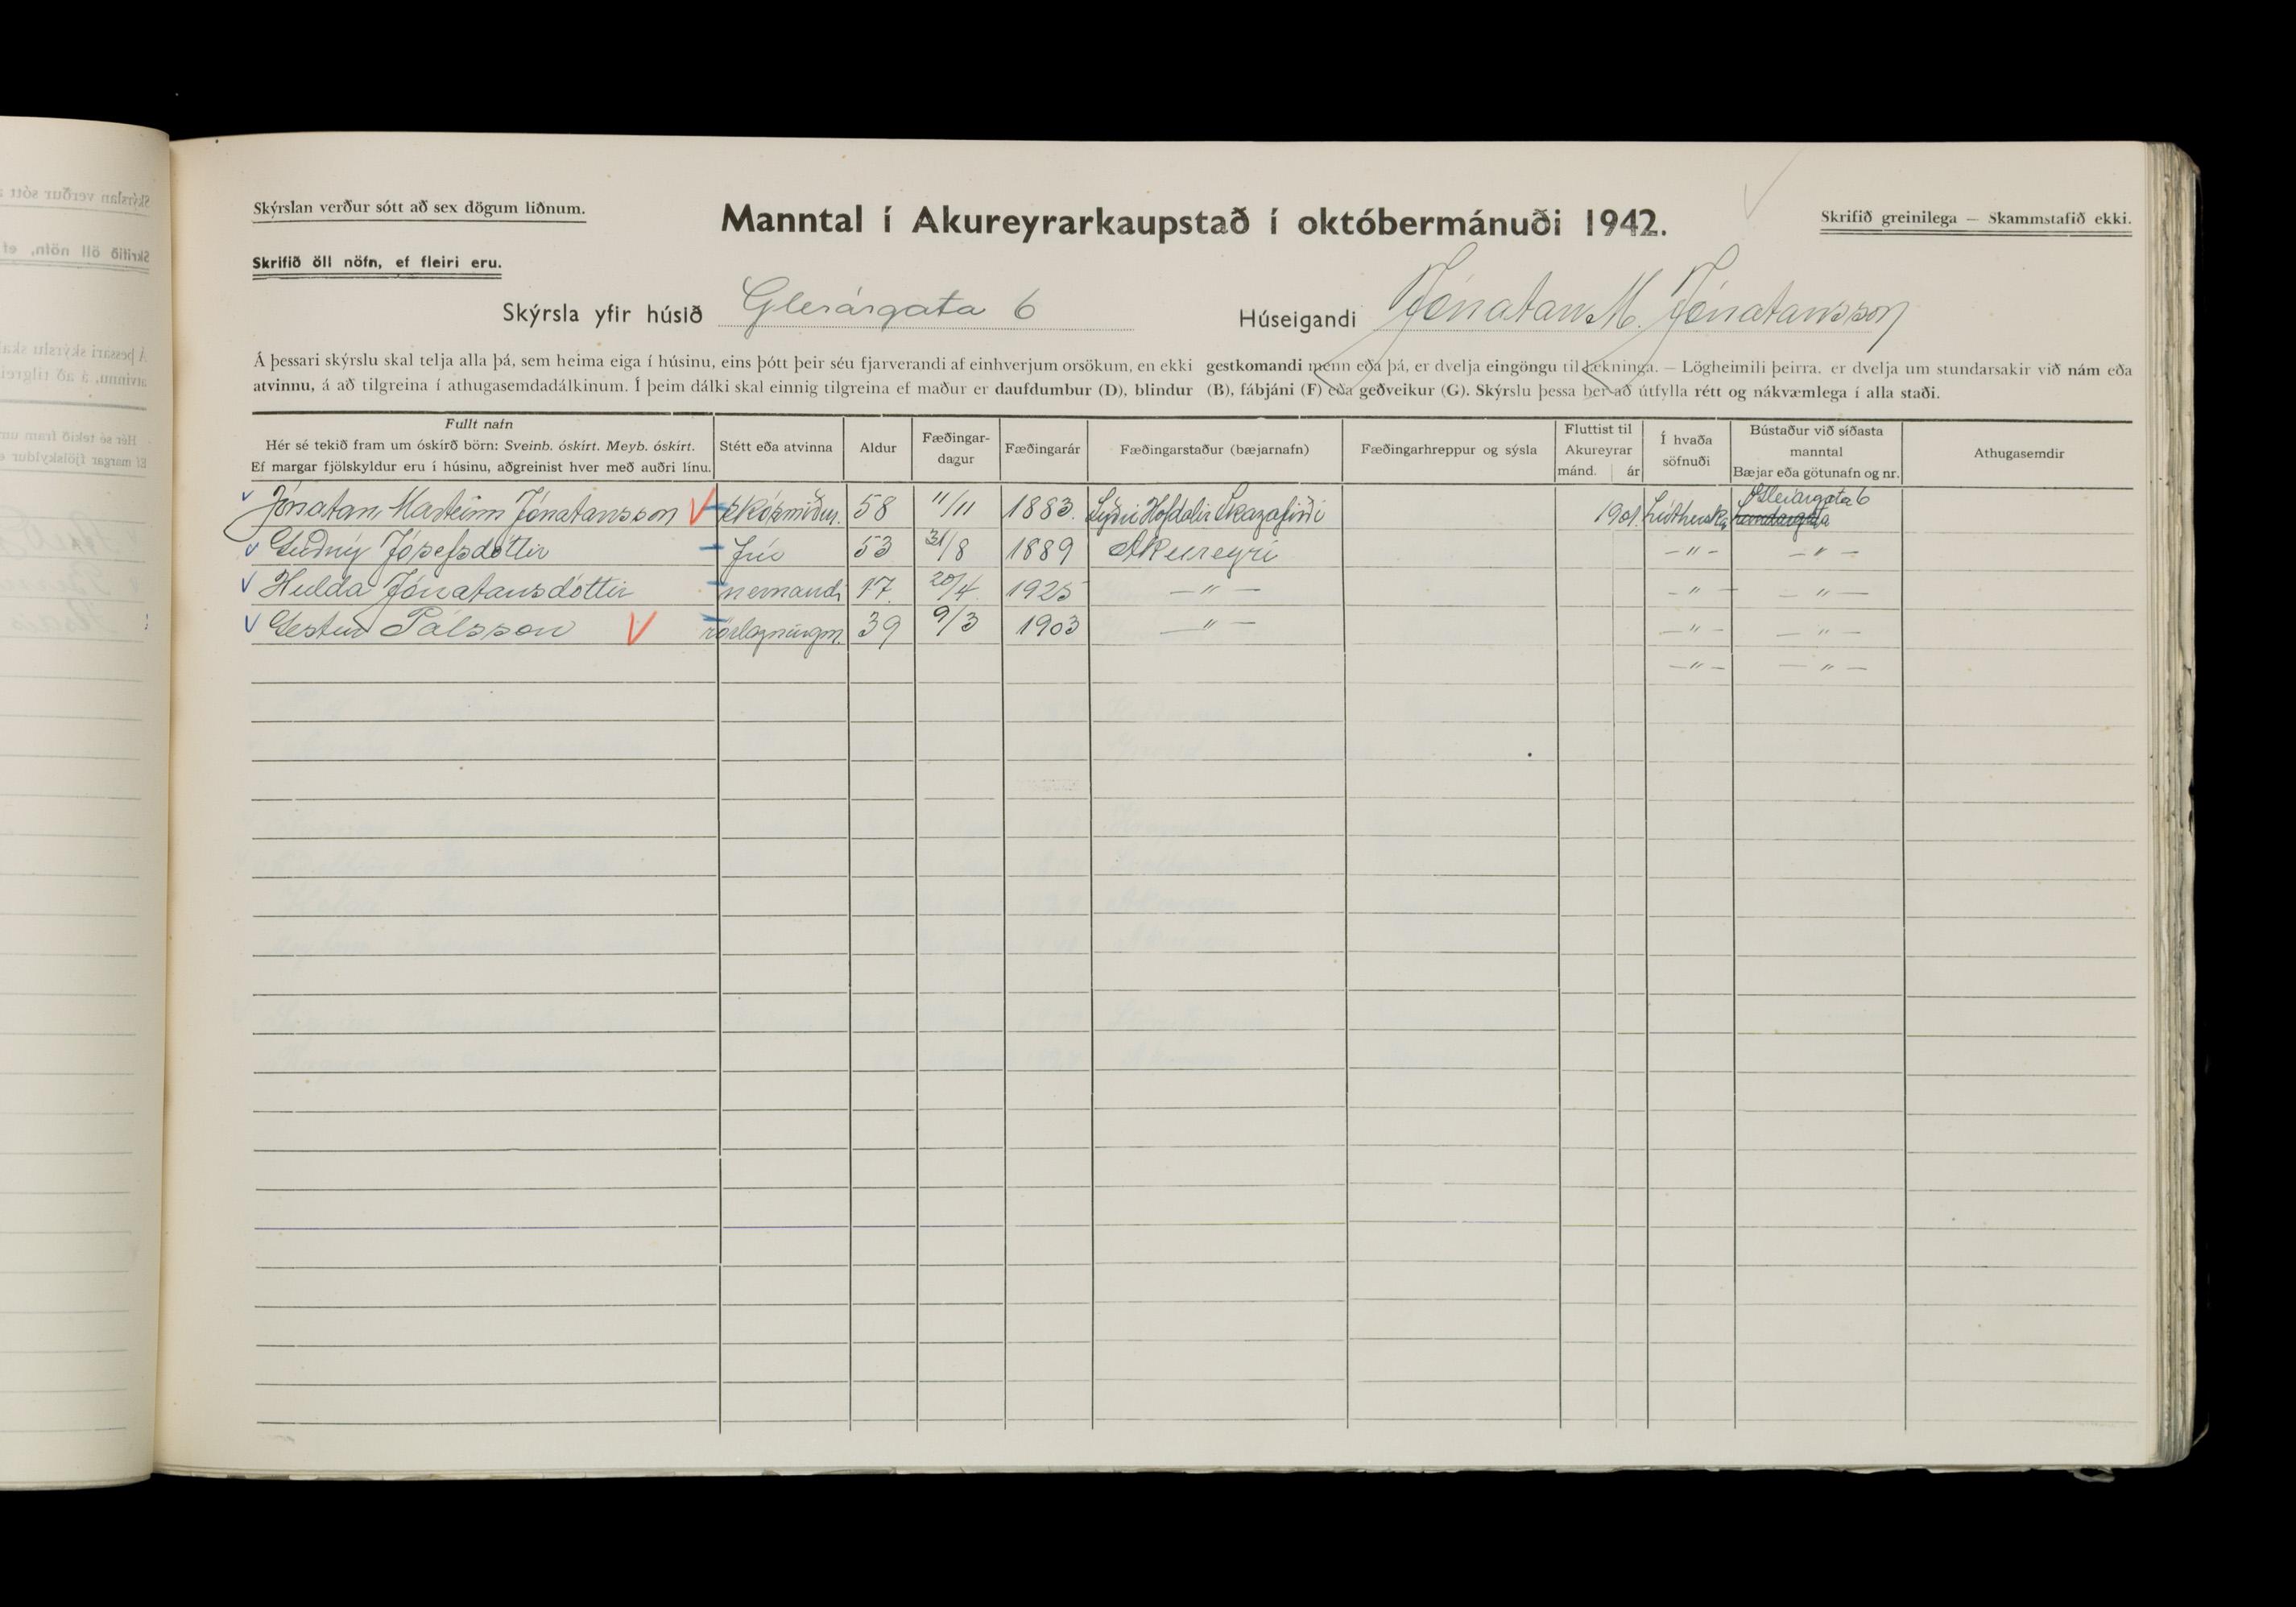 Skýrslan verður sótt að sex dögum liðnum.
Manntal í Akureyrarkaupstað í októbermánuði 1942.
Skrifið greinilega — Skammstafið ekki.
Skrifið öll nöfn, ef fleiri eru.
Skýrsla yfir húsið Glerárgata 6 Húseigandi Jónatan M. Jónatansson
Á þessari skýrslu skal telja alla þá, sem heima eiga í húsinu, eins þótt þeir séu fjarverandi af einhverjum orsökum, en ekki gestkomandi menn eða þá, er dvelja eingöngu til lækninga. — Lögheimili þeirra, er dvelja um stundarsakir við nám eða
atvinnu, á að tilgreina í athugasemdadálkinum. Í þeim dálki skal einnig tilgreina ef maður er daufdumbur (D), blindur (B), fábjáni (F) eða geðveikur (G). Skýrslu þessa ber að útfylla rétt og nákvæmlega í alla staði.
Fullt nafn
Hér sé tekið fram um óskírð börn: Sveinb. óskírt. Meyb. óskírt.
Ef margar fjölskyldur eru í húsinu, aðgreinist hver með auðri línu.
Stétt eða atvinna
Aldur
Fæðingar-
dagur
Fæðingarár
Fæðingarstaður (bæjarnafn)
Fæðingarhreppur og sýsla
Fluttist til
Akureyrar
mánd. ár
Í hvaða
söfnuði
Bústaður við síðasta
manntal
Bæjar eða götunafn og nr.
Athugasemdir
Jónatan Marteinn Jónatansson skósmiður. 58 11/11 1883. Syðri Hofdalir Skagafirði 1901. Lúthersk Glerárgata 6
Guðný Jósefsdóttir frú 53 31/8 1889 Akureyri — " — — " —
Hulda Jónatansdóttir nemandi 17. 20/4. 1925 — " — — " — — " —
Gestur Pálsson 39 9/3 1903 — " — — " — — " —
— " — — " —